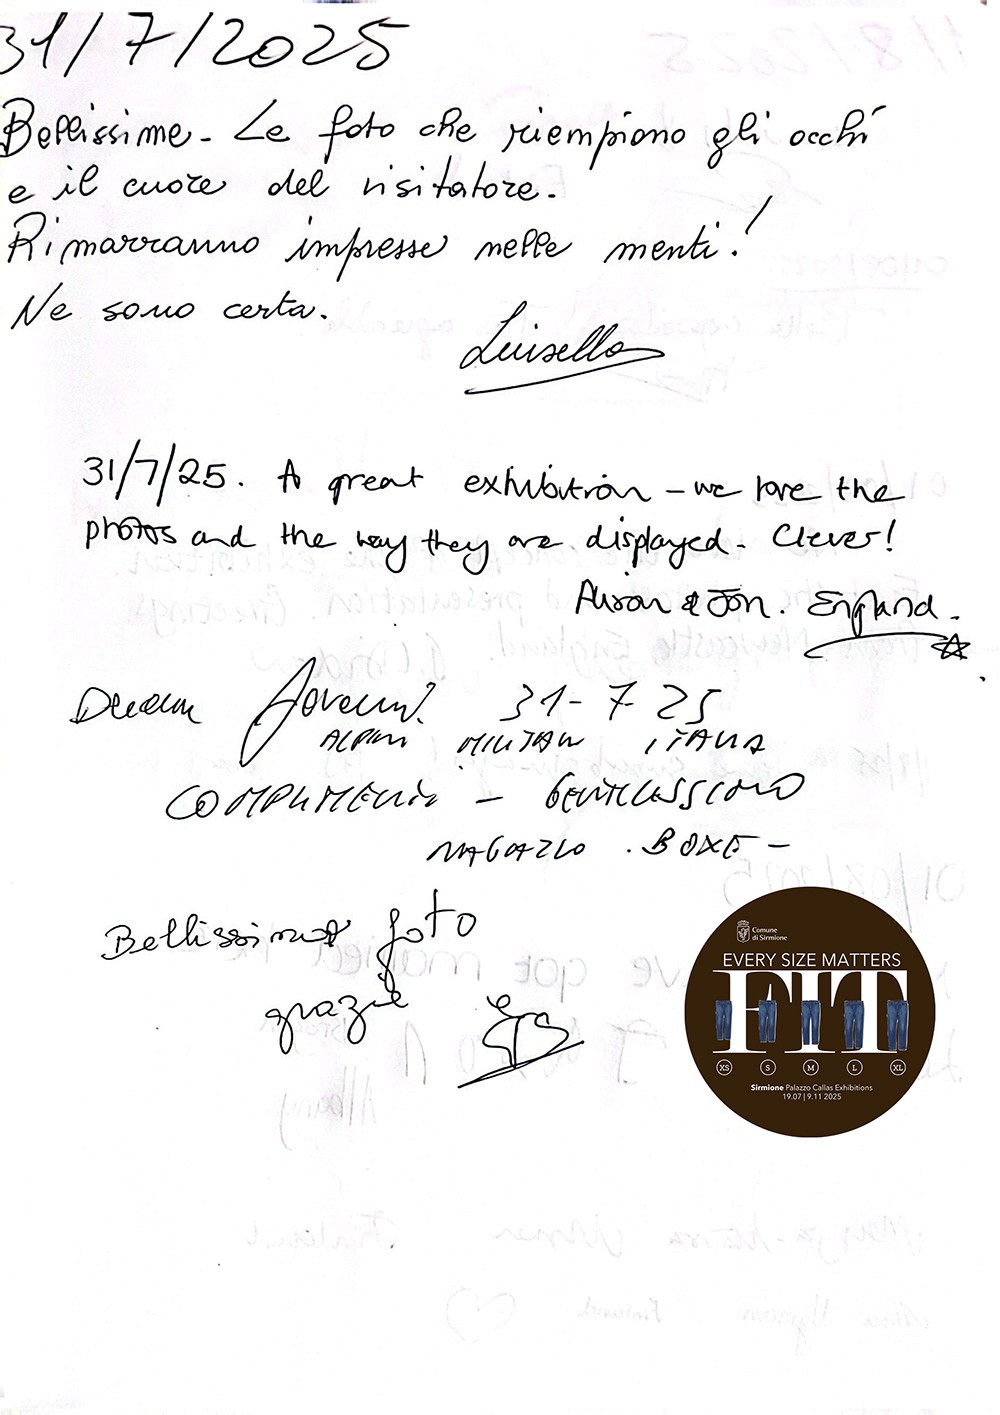 31/7/2025
Bellissime. Le foto che riempiono gli occhi
e il cuore del visitatore.
Rimarranno impresse nelle menti!
Ne sono certa.
Luisella
31/7/25. A great exhibition - we love the
photos and the way they are displayed. Clever!
Alison & Jon. England.
31-7 25
ALPINI MILITARI ITALIA
COMPLIMENTI - GENTILISSIMO
RAGAZZO . BOXE -
Bellissime foto
grazie
Comune
di Sirmione
EVERY SIZE MATTERS
FIT
XS S M L XL
Sirmione Palazzo Callas Exhibitions
19.07 | 9.11 2025